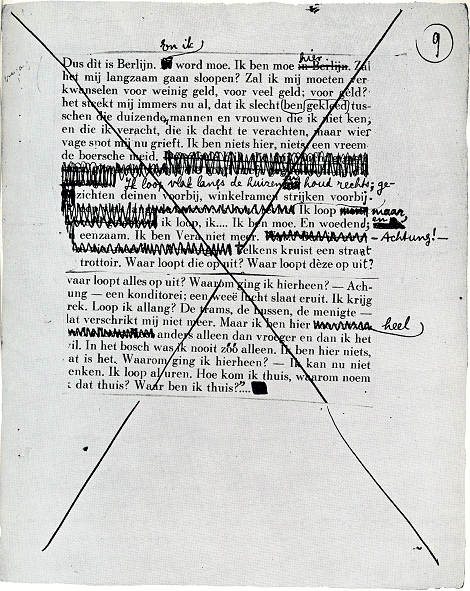 9
En ik
hier
Dus dit is Berlijn. word moe. Ik ben moe in Berlijn. Zal
het mij langzaam gaan sloopen? Zal ik mij moeten ver-
kwanselen voor weinig geld, voor veel geld; voor geld?
het stekt mij immers nu al, dat ik slecht (ben gekleed) tus-
schen die duizende mannen en vrouwen die ik niet ken,
en die ik veracht, die ik dacht te verachten, maar wier
vage spot mij nu grieft. Ik ben niets hier, niets, een vreem-
de boersche meid.
Ik loop vlak langs de huizen houd rechts; ge-
zichten deinen voorbij, winkelramen strijken voorbij.
Ik loop maar,
en
ik loop, ik.... Ik ben moe. En woedend;
eenzaam. Ik ben Vera niet meer. – Achtung! –
Telkens kruist een straat
trottoir. Waar loopt die op uit? Waar loopt dèze op uit?
vaar loopt alles op uit? Waarom ging ik hierheen? — Ach-
ung — een konditorei; een weeë lucht slaat eruit. Ik krijg
rek. Loop ik allang? De trams, de bussen, de menigte —
lat verschrikt mij niet meer. Maar ik ben hier heel
anders alleen dan vroeger en dan ik het
vil. In het bosch was ik nooit zóó alleen. Ik ben hier niets,
at is het. Waarom ging ik hierheen? — Ik kan nu niet
enken. Ik loop al uren. Hoe kom ik thuis, waarom noem
k dat thuis? Waar ben ik thuis?....